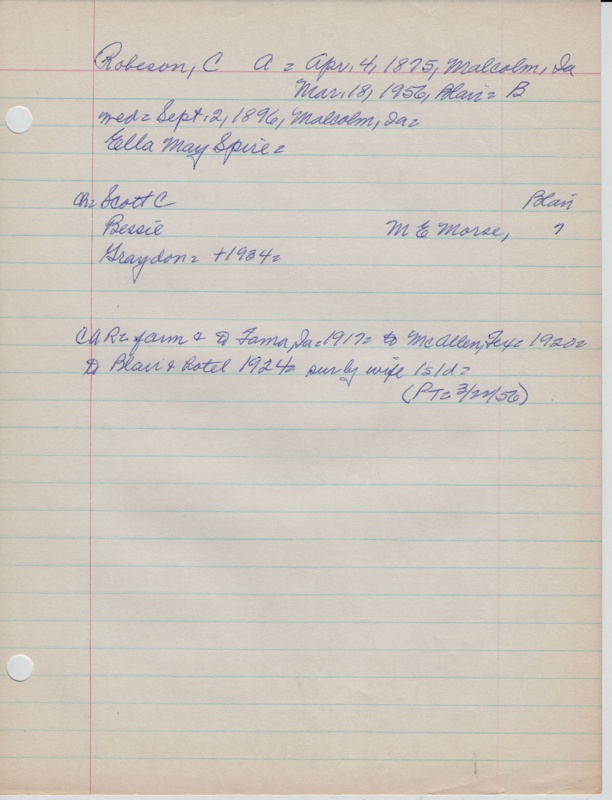 Robeson, C A = Apr. 4, 1875, Malcolm, Ia
Mar. 18, 1956, Blair = B
med = Sept. 2, 1896, Malcolm, Ia =
Ella May Spire =
ch = Scott C Blair
Bessie M E Morse, ?
Graydon = +1934 =
CAR = farm & to Tama, Ia = 1917 = to McAllen, Tex = 1920 =
to Blair & hotel 1924 = sur by wife 1s/d =
(PT = 3/22/56)